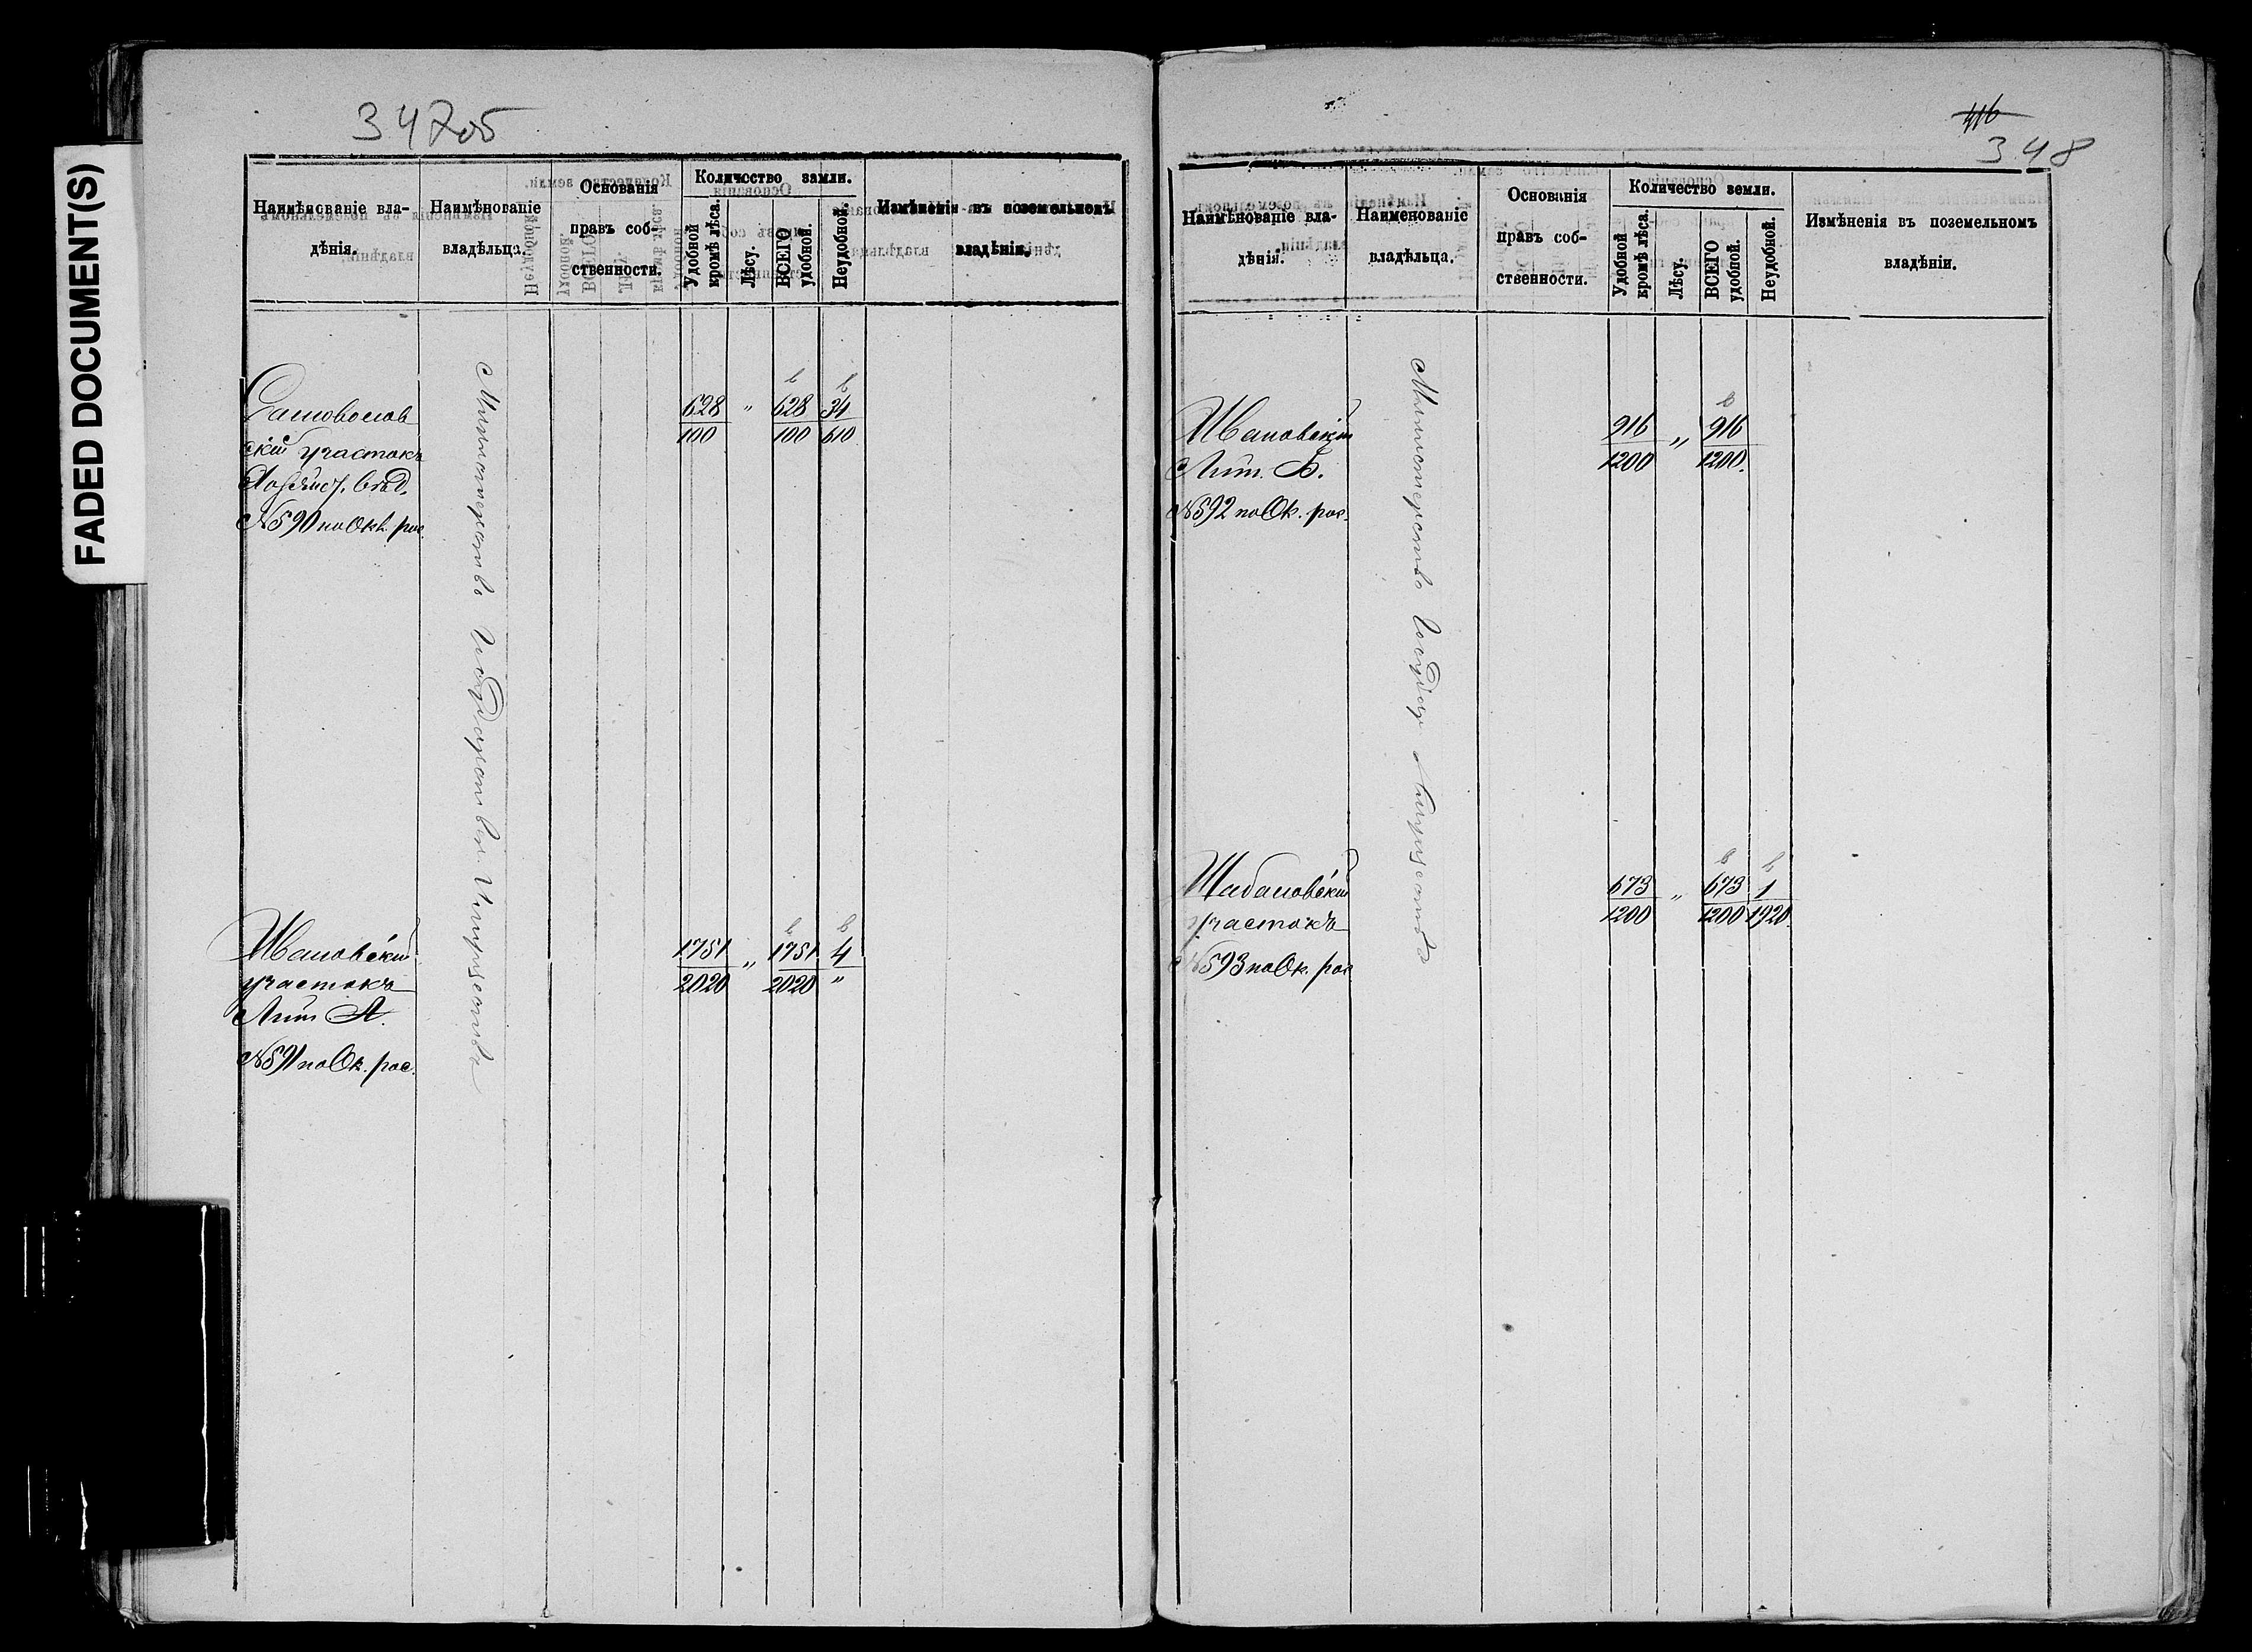 FADED DOCUMENT(S)
347об
Наимѣнованіе вла-
дѣнія.
Наимѣнованіе
владѣльца.
Основанія
правъ соб-
ственности.
Количество земли.
Удобной
кромѣ лѣса.
Лѣсу.
ВСЕГО
удобной.
Неудобной.
Измѣненія въ поземельномъ
владѣніи.
участокъ
№590 по Окл. рос.
Министерство Государствен. Имуществъ
628 " 628 34
100 100 610
Ивановскій
участокъ
Лит. А.
№591 по Ок. рос.
1751 " 1751 4
2020 2020 "
416
348
Наимѣнованіе вла-
дѣнія.
Наименованіе
владѣльца.
Основанія
правъ соб-
ственности.
Количество земли.
Удобной
кромѣ лѣса.
Лѣсу.
ВСЕГО
удобной.
Неудобной.
Измѣненія въ поземельномъ
владѣніи.
Ивановскій
Лит. Б.
№592 по Ок. рос.
Министерство Государ Имуществъ
916 " 916
1200 1200.
Шабановскій
участокъ
№593 по Ок. рос
673 " 673 1
1200 1200 1920.